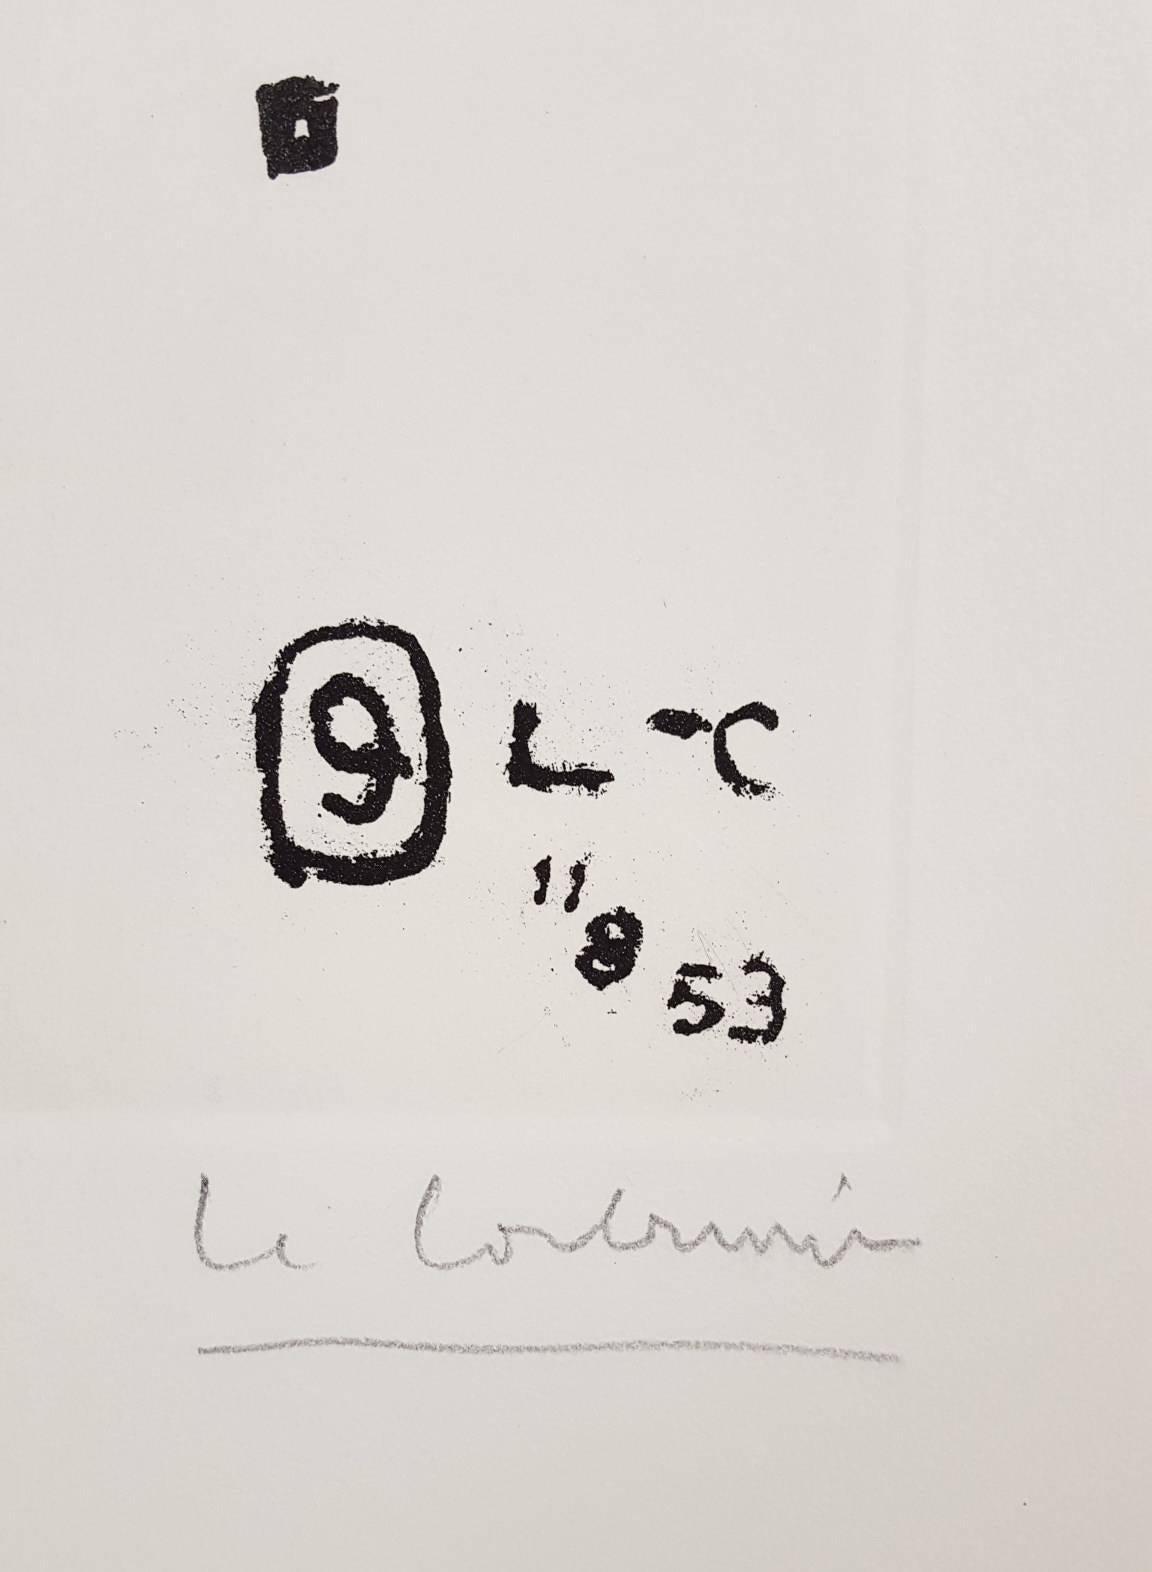 9 L-C
11
8
53
Le Corbusier